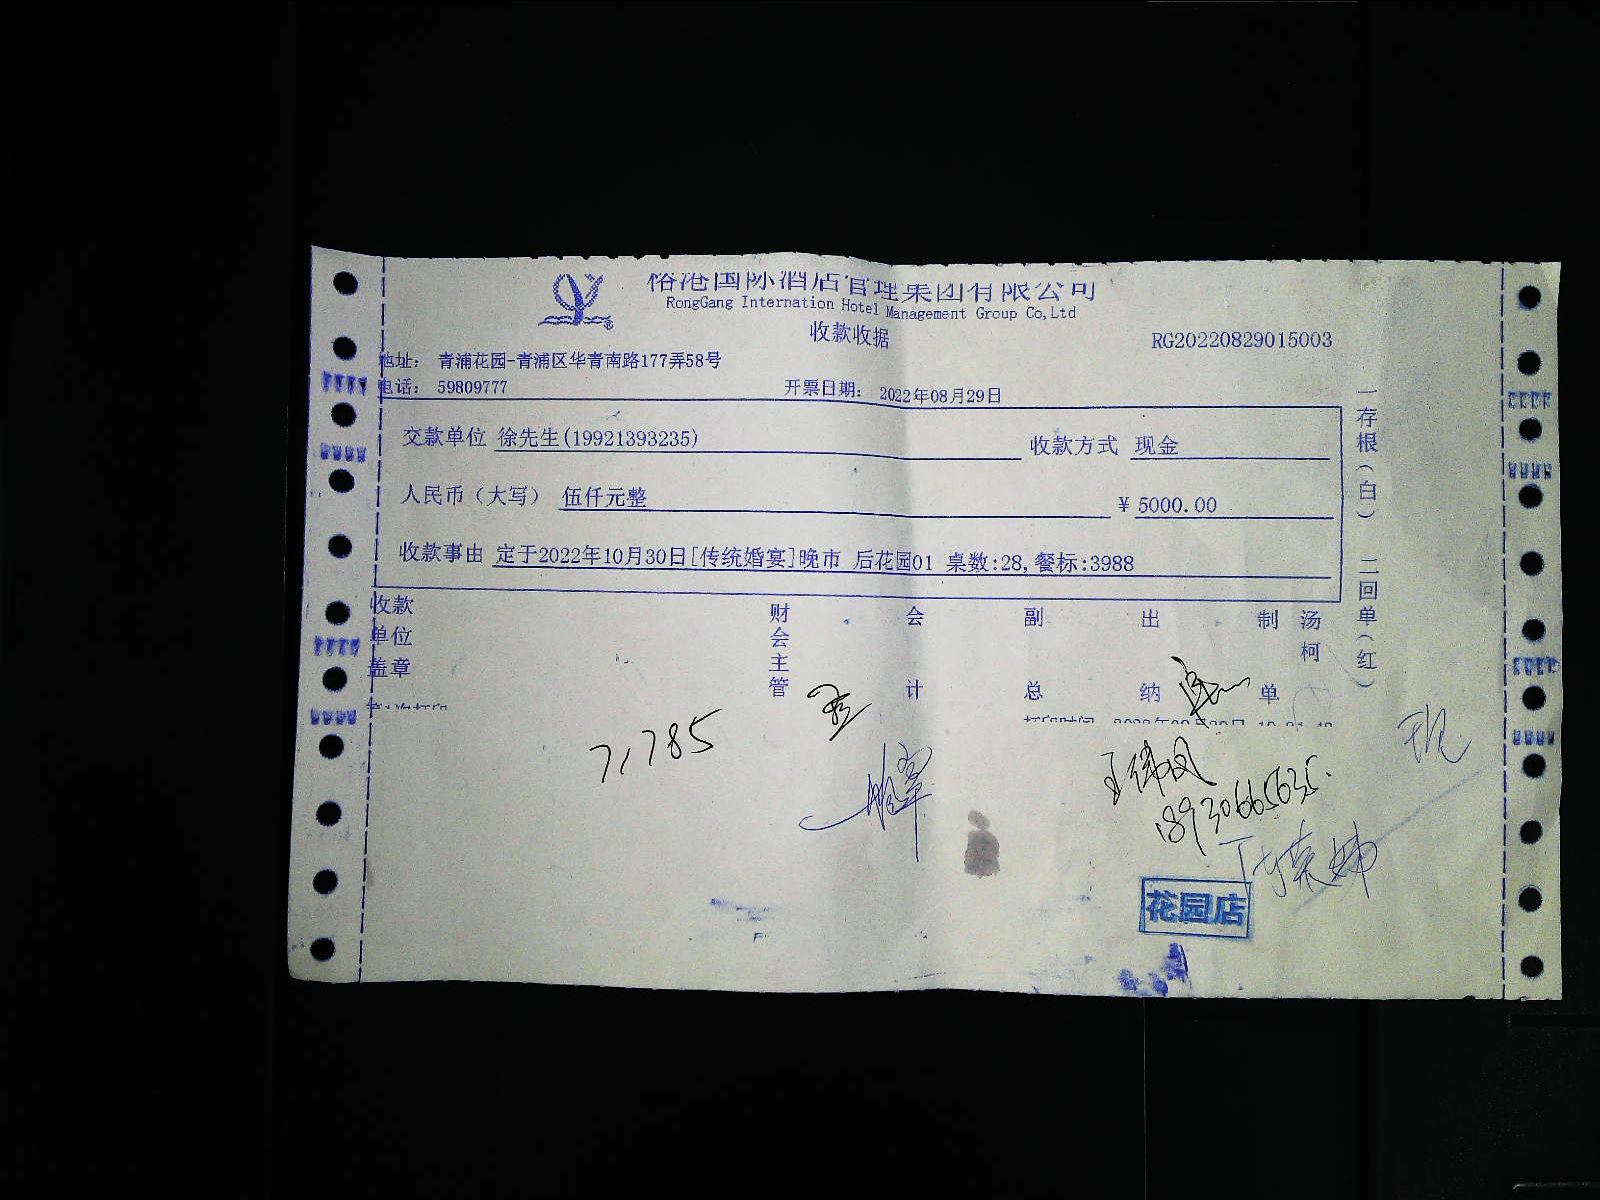 榕港国际酒店管理集团有限公司
RongGang Internation Hotel Management Group Co,Ltd
收款收据
RG20220829015003
地址： 青浦花园-青浦区华青南路177弄58号
电话： 59809777
开票日期： 2022年08月29日
交款单位 徐先生(19921393235) 收款方式 现金
人民币（大写） 伍仟元整 ¥ 5000.00
收款事由 定于2022年10月30日[传统婚宴]晚市 后花园01 桌数:28,餐标:3988
一存根（白） 二回单（红）
收款单位盖章
财会主管
会计
副总
出纳
制单
汤柯
71785
18930665635.
花园店